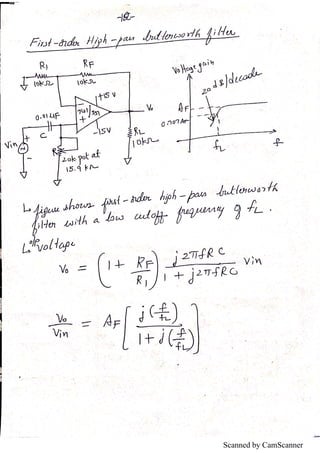 -12-
First-order High-pass butterworth filter
R1
RF
10kΩ
10kΩ
+15 V
741/351
-15V
Vo
0.01μF
C
Vin
R
20k pot at
15.9 kΩ
RL
10kΩ
Voltage gain
AF
0.707AF
20 dB/decade
fL
f
figure shows first-order high-pass butterworth
filter with a low cutoff frequency of fL.
o/p voltage
Vo = (1 + RF/R1) j2πfRC / 1 + j2πfRC Vin
Vo/Vin = AF [ j(f/fL) / 1 + j(f/fL) ]
Scanned by CamScanner